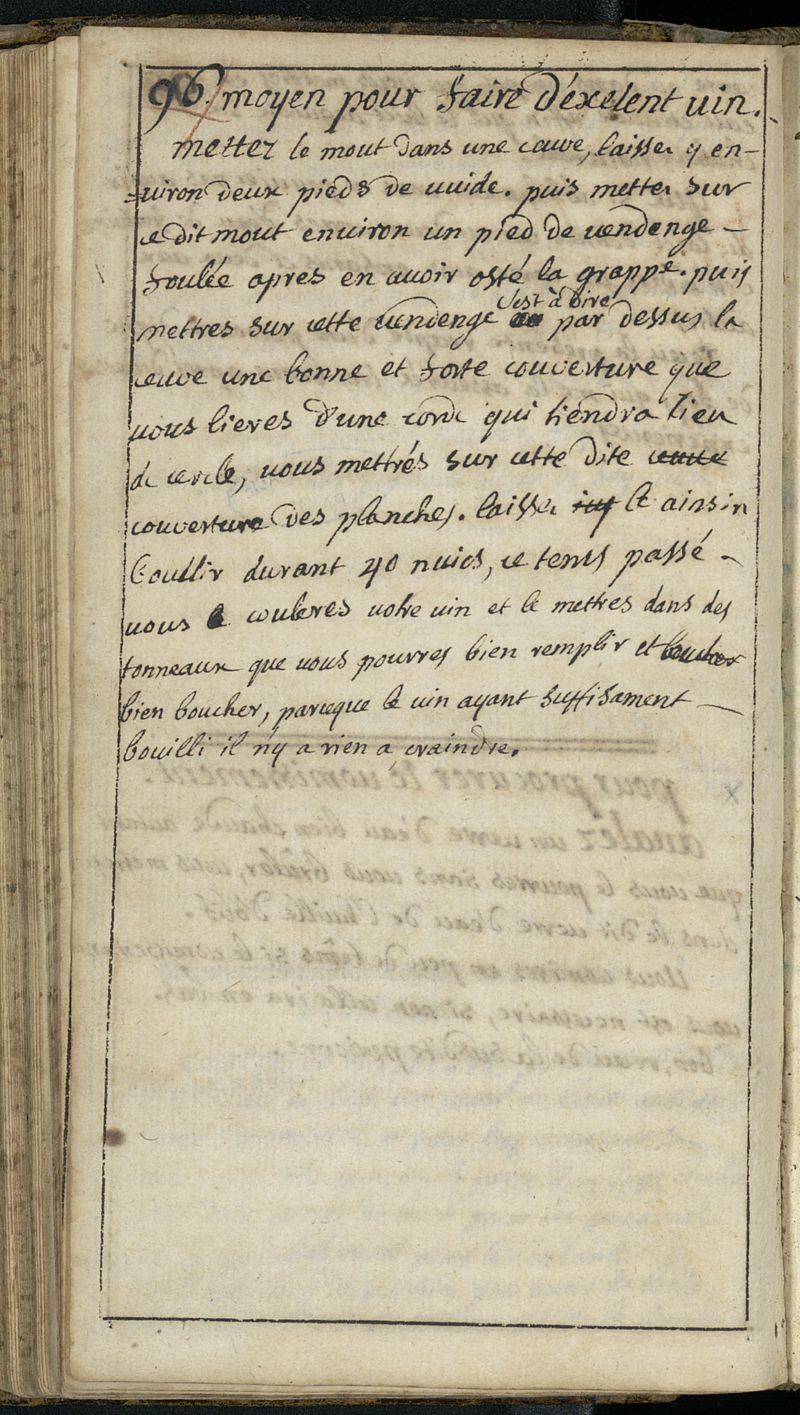 96. moyen pour faire d'éxelent uin.
mettez le mout dans une cauue, laisser y en-
-uiron deux pieds de uuide. puis mettes sur
ce dit mout enuiron un pied de uendenge -
foulée apres en auoir osté la grappe. puis
mettres sur cette uendenge c'est à dire par dessus la
ceuue une bonne et forte couuerture que
uous lieres d'une corde qui tiendra lieu
de cercle, uous mettrés sur cette dite cuuue
couuerture des planches. laisser le ainsin
boullir durant 40 nuics, ce tems passé -
uous couleres uotre uin et le mettres dans des
tonneaux que uous pourres bien remplir et boucher
bien boucher, parceque le uin ayant suffisament -
bouilli il n'y a rien a craindre.